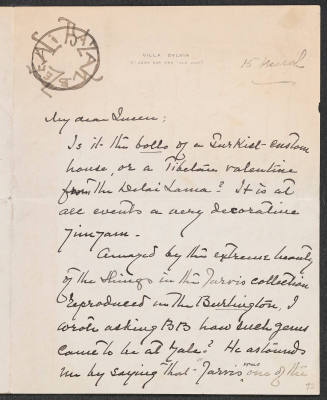 VILLA SYLVIA
15 March
My dear Queen;
Is it the bollo of a Turkish custom
house, or a Tibetan valentine
from the Delai Lama? It is at
all events a very decorative
jimjam.
Amazed by the extreme beauty
of the things in the Jarvis collection
reproduced in the Burlington, I
wrote asking BB how such gems
came to be at Yale? He astounds
me by saying that "Jarvis was one of the